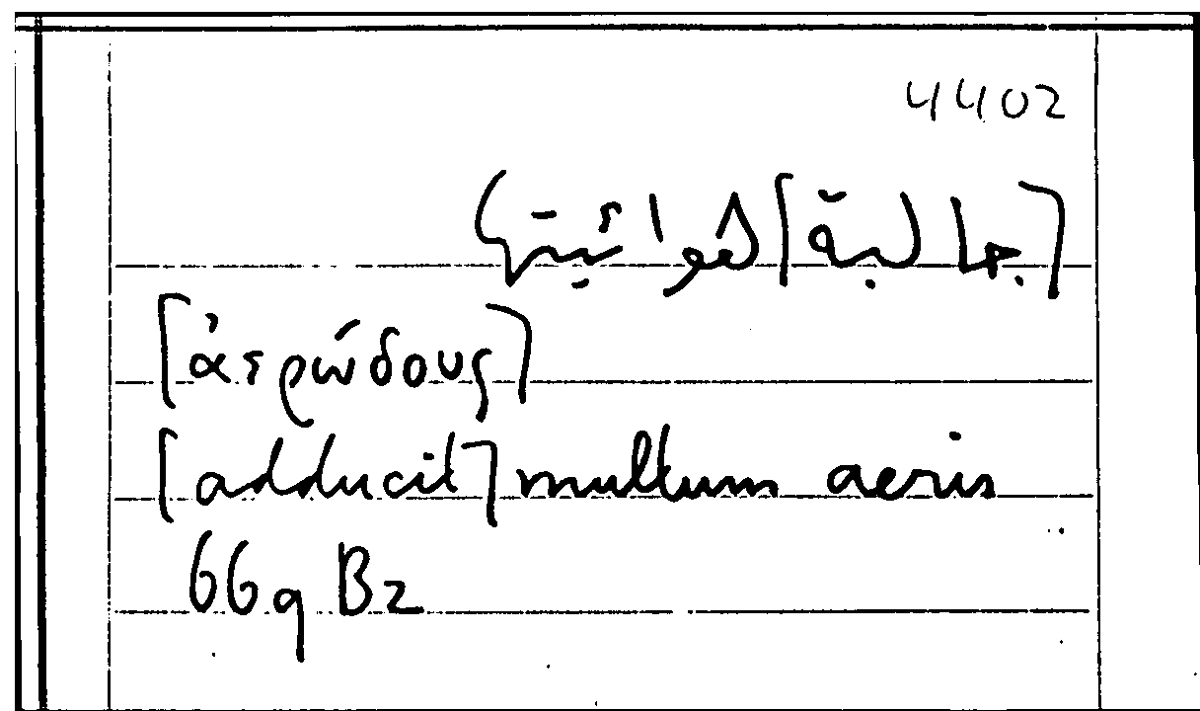 4402
[جالبة] لهوائيتها
[ἀερώδους]
[adducit] multum aeris
669 B2